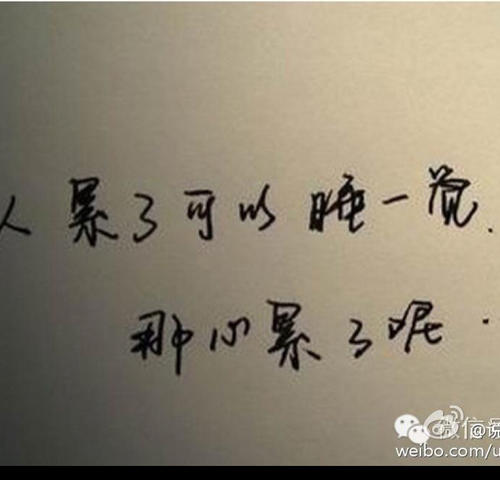 人累了可以睡一觉.
那心累了呢.
微信
weibo.com/u